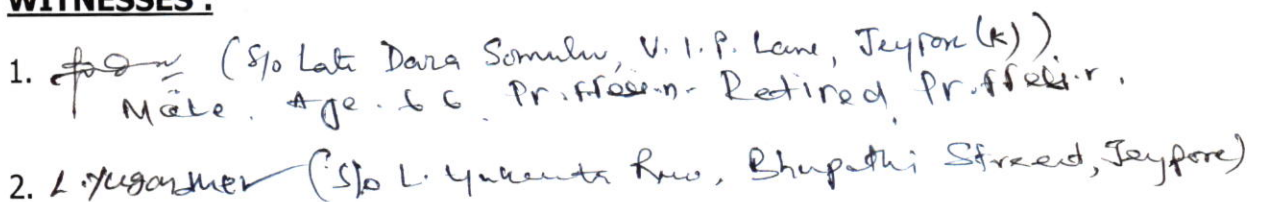 WITNESSES :
1. (S/o Late Dara Somulu, V.I.P. Lane, Jeypore (K))
Male. Age. 66 Profession- Retired Proffesior.
2. L. Yugandher (S/o L. Rao, Bhupathi Streed, Jeypore)